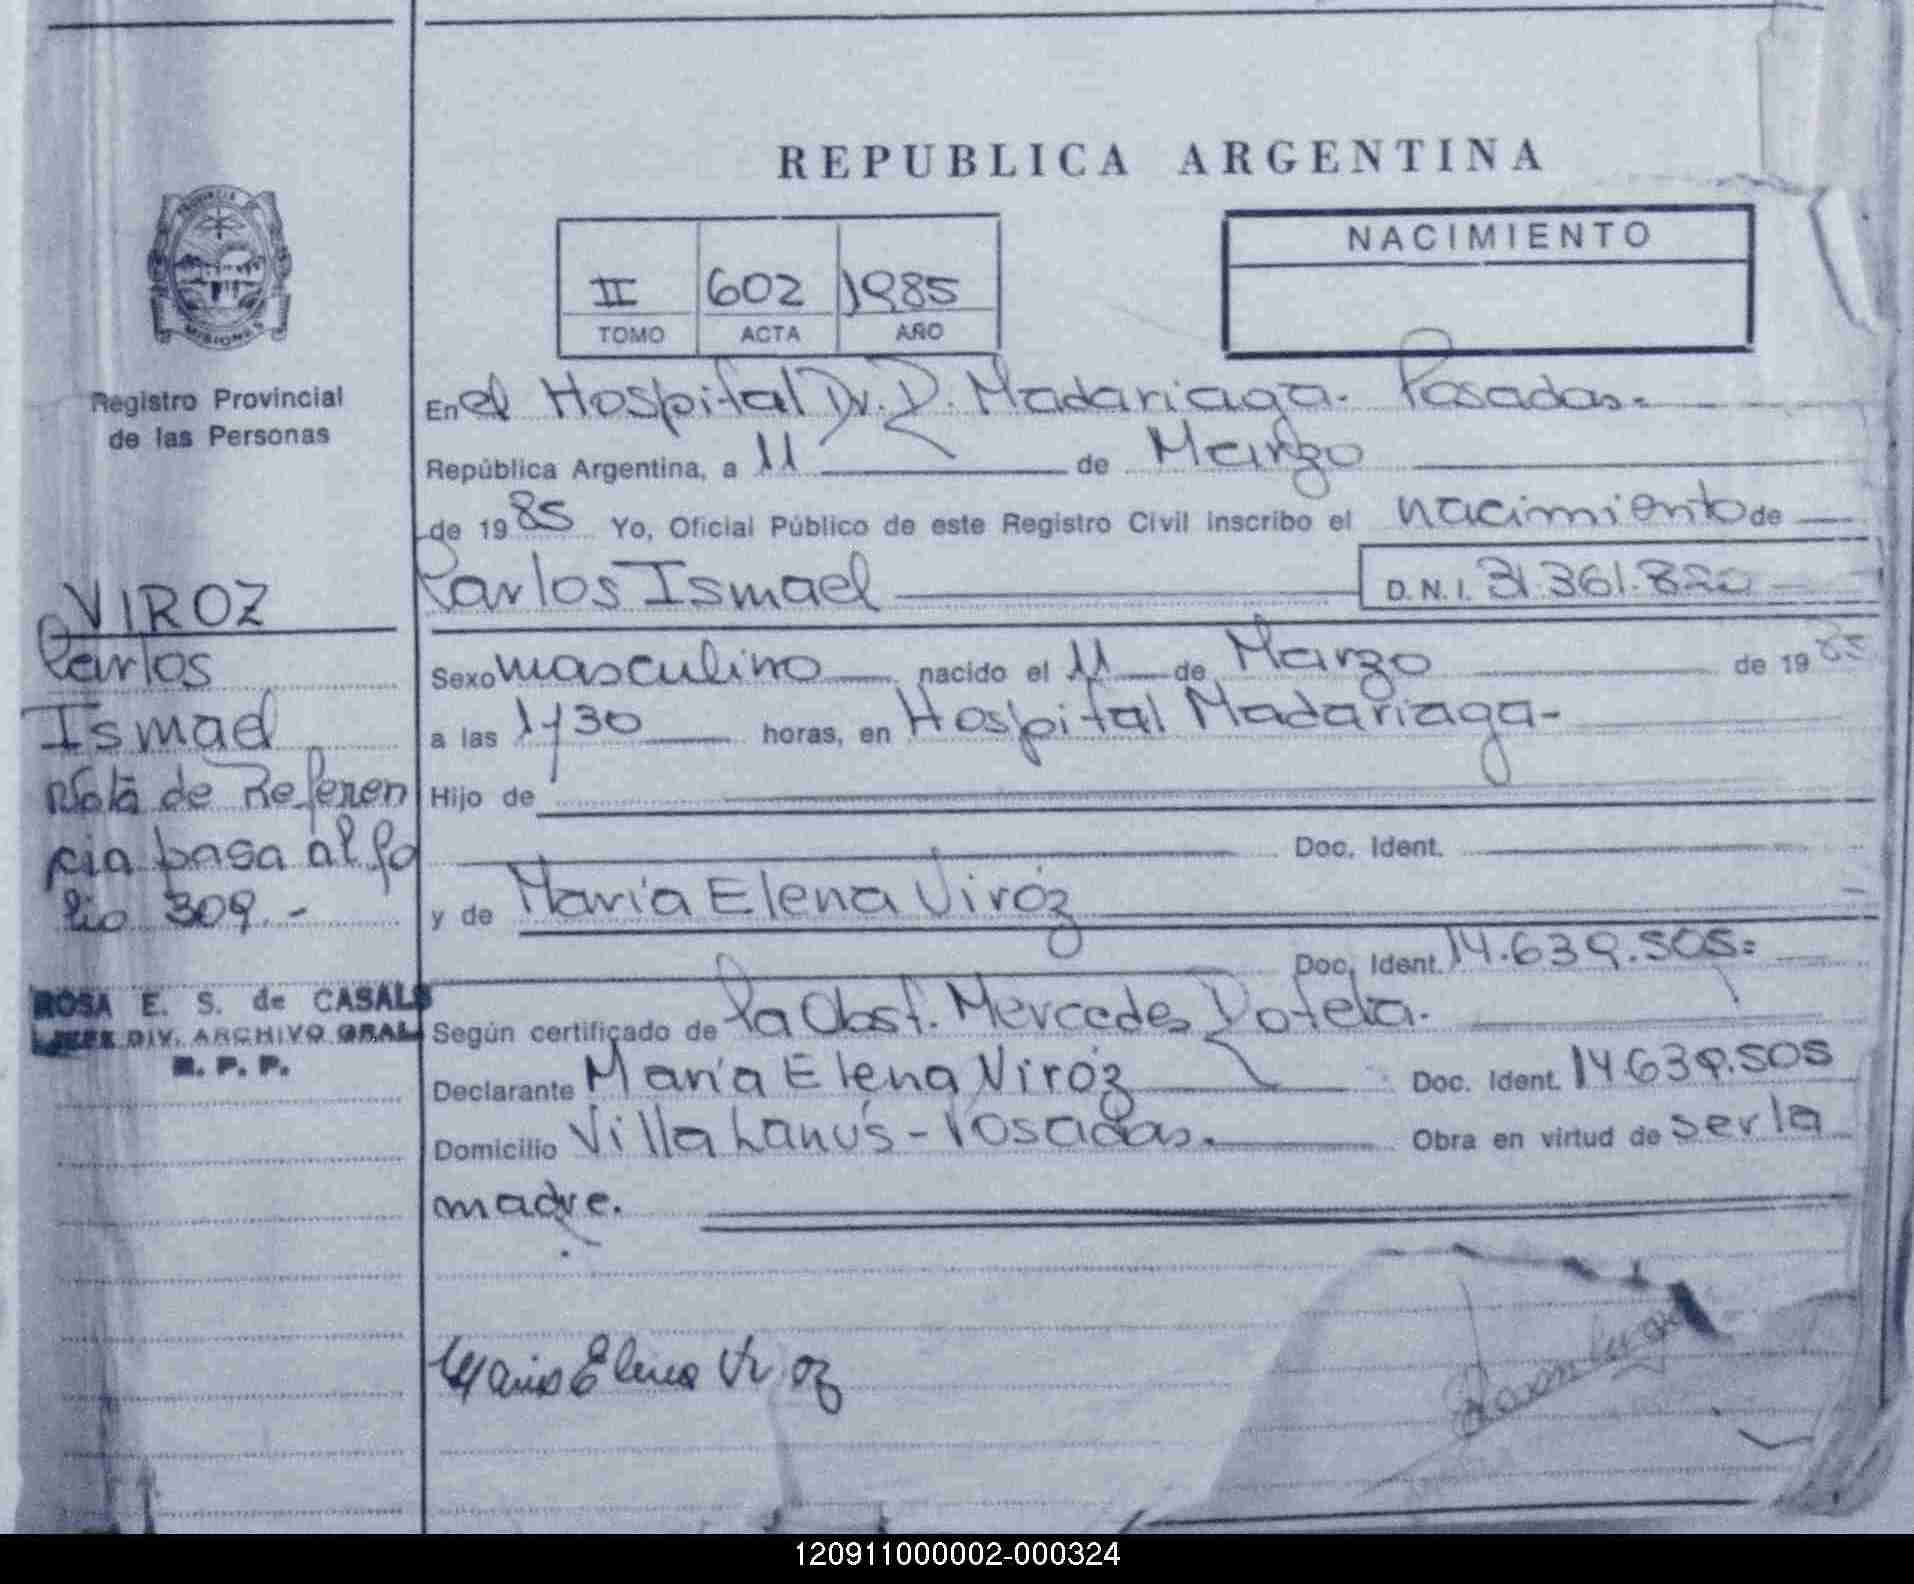 REPUBLICA ARGENTINA
PROVINCIA
MISIONES
NACIMIENTO
II 602 1985
TOMO ACTA AÑO
Registro Provincial
de las Personas
En el Hospital Dr. D. Madariaga. Posadas.
República Argentina, a 11 de Marzo
de 1985 Yo, Oficial Público de este Registro Civil inscribo el nacimiento de
Carlos Ismael D.N.I. 31.361.820
VIROZ
Carlos
Ismael
Nota de Referen
cia pasa al fo
lio 309.-
ROSA E. S. de CASALS
JEFE DIV. ARCHIVO GRAL.
R. P. P.
Sexo masculino nacido el 11 de Marzo de 1985
a las 1y30 horas, en Hospital Madariaga-
Hijo de
Doc. Ident.
y de María Elena Viróz
Doc. Ident. 14.639.505=
Según certificado de la Obst. Mercedes
Declarante María Elena Viróz Doc. Ident. 14.639.505
Domicilio Villa Lanús - Posadas. Obra en virtud de ser la
madre.
Maria Elena Viroz
120911000002-000324